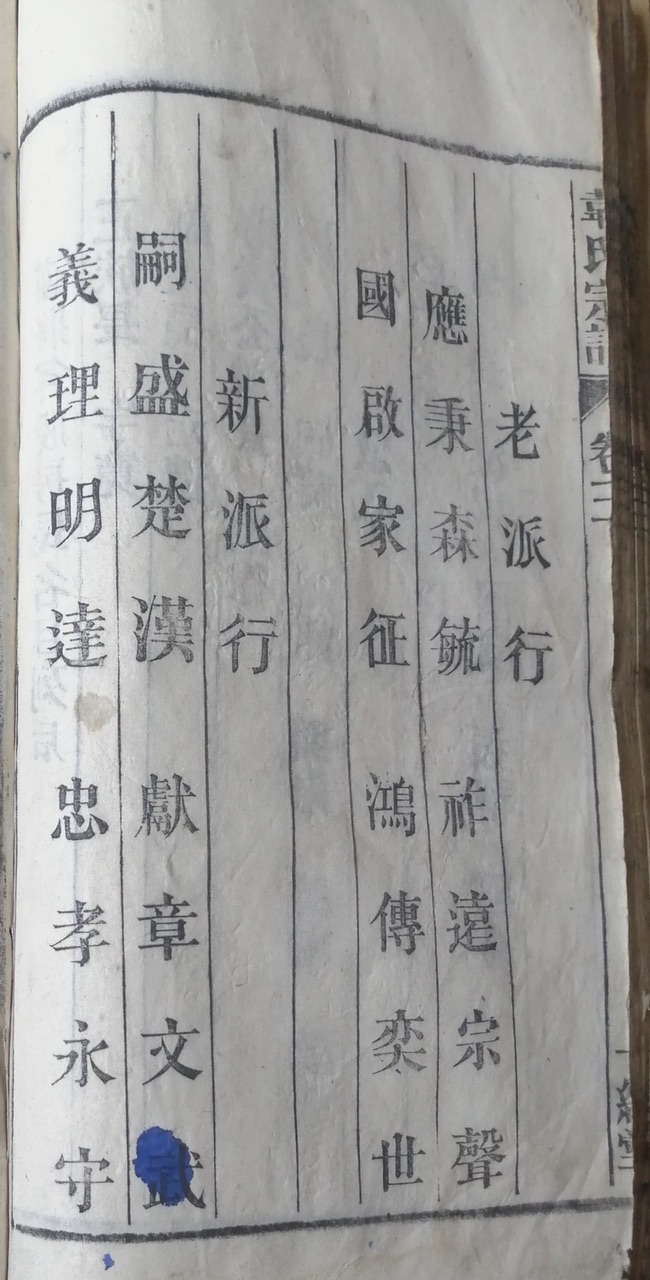 韋氏宗譜
老派行
應秉森毓 祚遠宗聲
國啟家征 鴻傳奕世
新派行
嗣盛楚漢 獻章文武
義理明達 忠孝永守